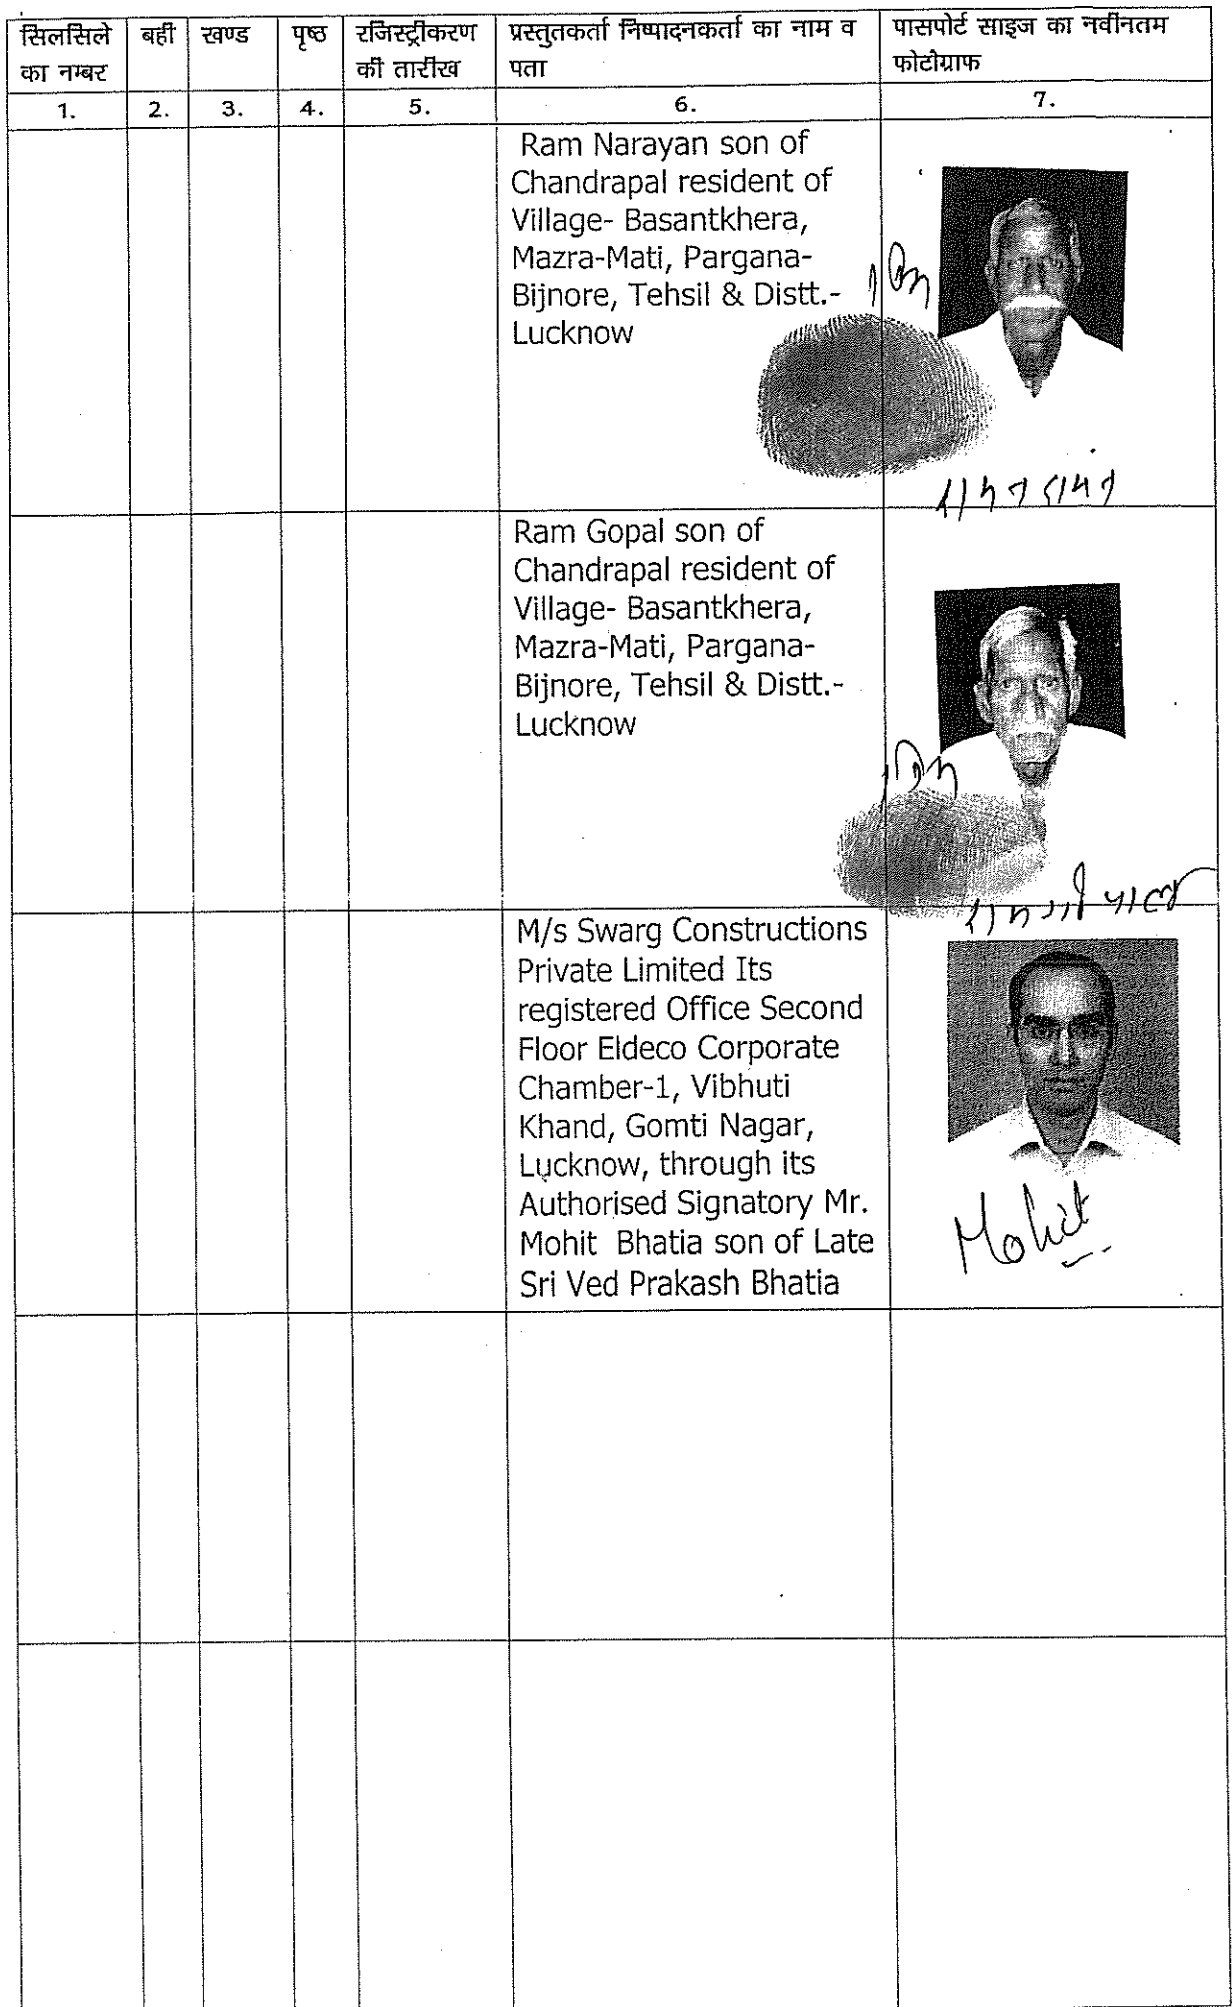 सिलसिले का नम्बर
बही
खण्ड
पृष्ठ
रजिस्ट्रीकरण की तारीख
प्रस्तुतकर्ता निष्पादनकर्ता का नाम व पता
पासपोर्ट साइज का नवीनतम फोटोग्राफ
1. 2. 3. 4. 5. 6. 7.
Ram Narayan son of
Chandrapal resident of
Village- Basantkhera,
Mazra-Mati, Pargana-
Bijnore, Tehsil & Distt.-
Lucknow
Ram Gopal son of
Chandrapal resident of
Village- Basantkhera,
Mazra-Mati, Pargana-
Bijnore, Tehsil & Distt.-
Lucknow
रामगोपाल
M/s Swarg Constructions
Private Limited Its
registered Office Second
Floor Eldeco Corporate
Chamber-1, Vibhuti
Khand, Gomti Nagar,
Lucknow, through its
Authorised Signatory Mr.
Mohit Bhatia son of Late
Sri Ved Prakash Bhatia
Mohit